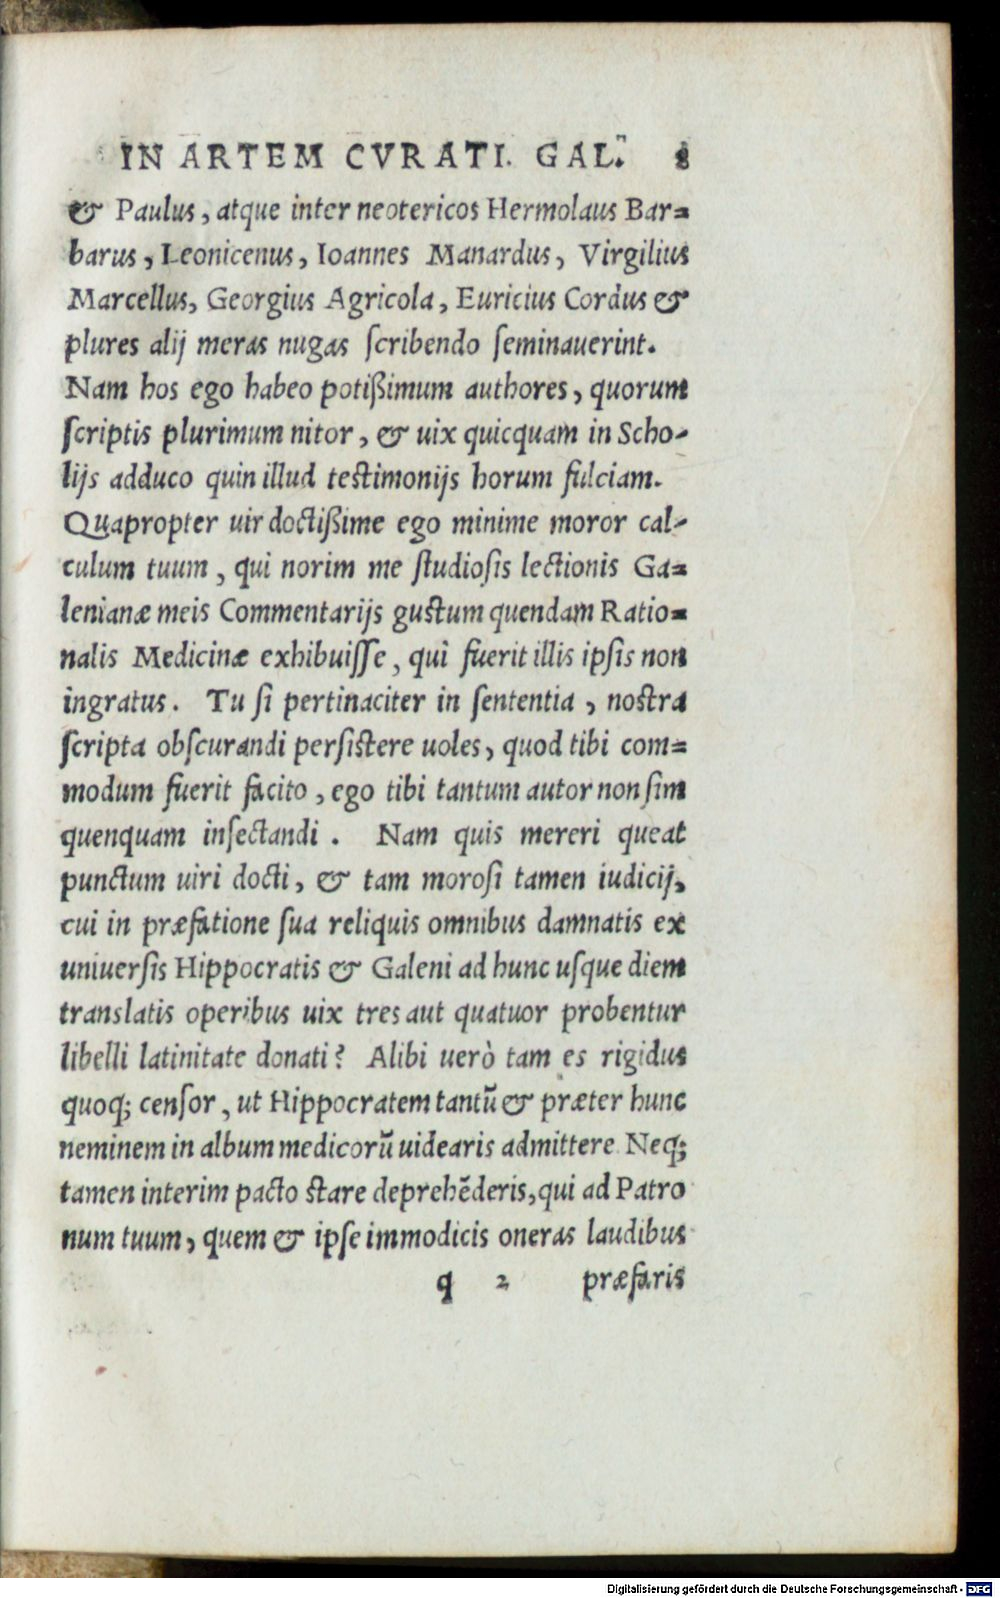 IN ARTEM CVRATI. GAL. 8
& Paulus, atque inter neotericos Hermolaus Bar=
barus, Leonicenus, Ioannes Manardus, Virgilius
Marcellus, Georgius Agricola, Euricius Cordus &
plures alij meras nugas ſcribendo ſeminauerint.
Nam hos ego habeo potißimum authores, quorum
ſcriptis plurimum nitor, & uix quicquam in Scho-
lijs adduco quin illud teſtimonijs horum fulciam.
Quapropter uir doctißime ego minime moror cal-
culum tuum, qui norim me ſtudioſis lectionis Ga=
lenianæ meis Commentarijs guſtum quendam Ratio=
nalis Medicinæ exhibuiſſe, qui fuerit illis ipſis non
ingratus. Tu ſi pertinaciter in ſententia, noſtra
ſcripta obſcurandi perſiſtere uoles, quod tibi com=
modum fuerit facito, ego tibi tantum autor non ſim
quenquam inſectandi. Nam quis mereri queat
punctum uiri docti, & tam moroſi tamen iudicij,
cui in præfatione ſua reliquis omnibus damnatis ex
uniuerſis Hippocratis & Galeni ad hunc uſque diem
translatis operibus uix tres aut quatuor probentur
libelli latinitate donati? Alibi uerò tam es rigidus
quoq; cenſor, ut Hippocratem tantũ & præter hunc
neminem in album medicorũ uidearis admittere. Neq;
tamen interim pacto ſtare deprehẽderis, qui ad Patro
num tuum, quem & ipſe immodicis oneras laudibus
q 2 præfaris
Digitalisierung gefördert durch die Deutsche Forschungsgemeinschaft - DFG